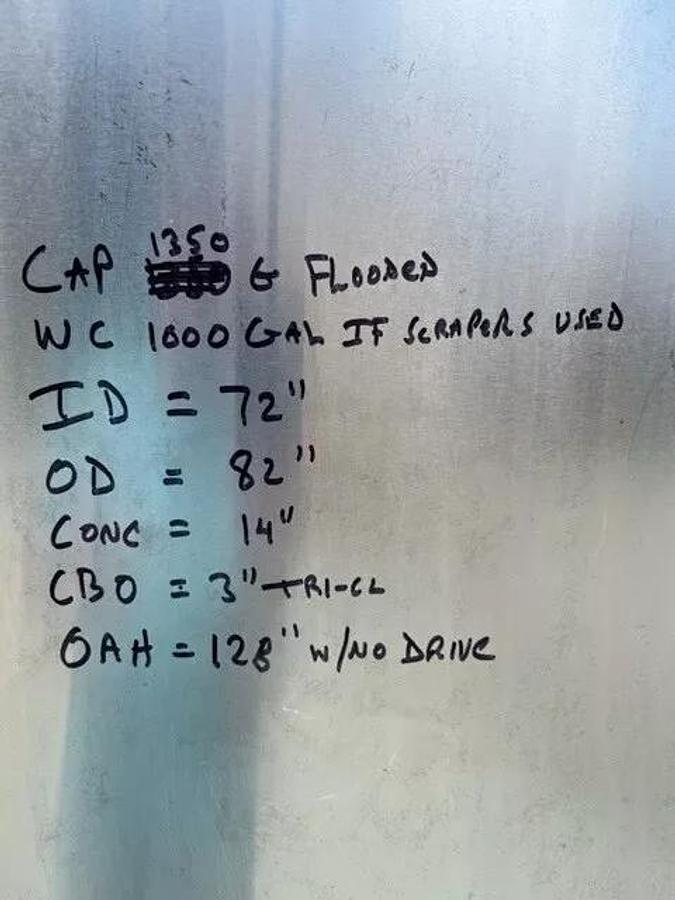 CAP 1350 G FLOODED
WC 1000 GAL IF SCRAPERS USED
ID = 72"
OD = 82"
CONC = 14"
CBO = 3" TRI-CL
OAH = 128" W/NO DRIVE